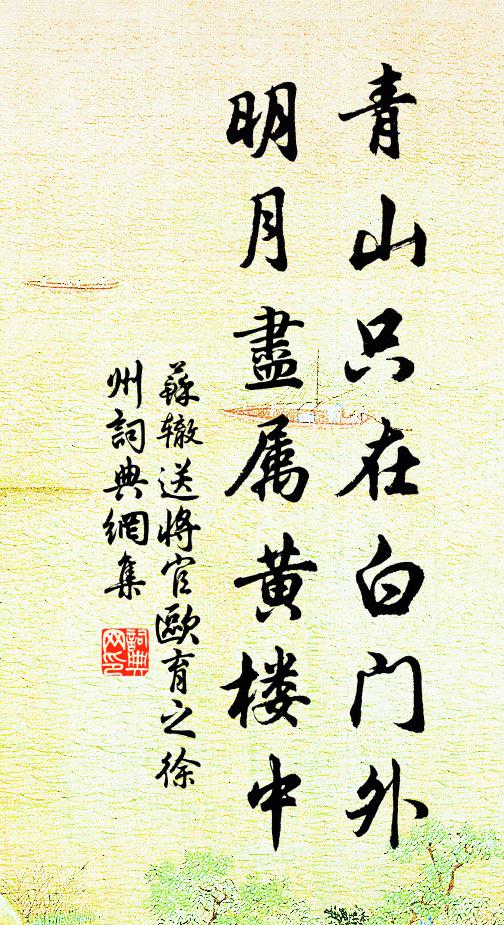 青山只在白门外
明月盡属黄楼中
蘇辙送將官歐育之徐
州詞典網集
詞典网印